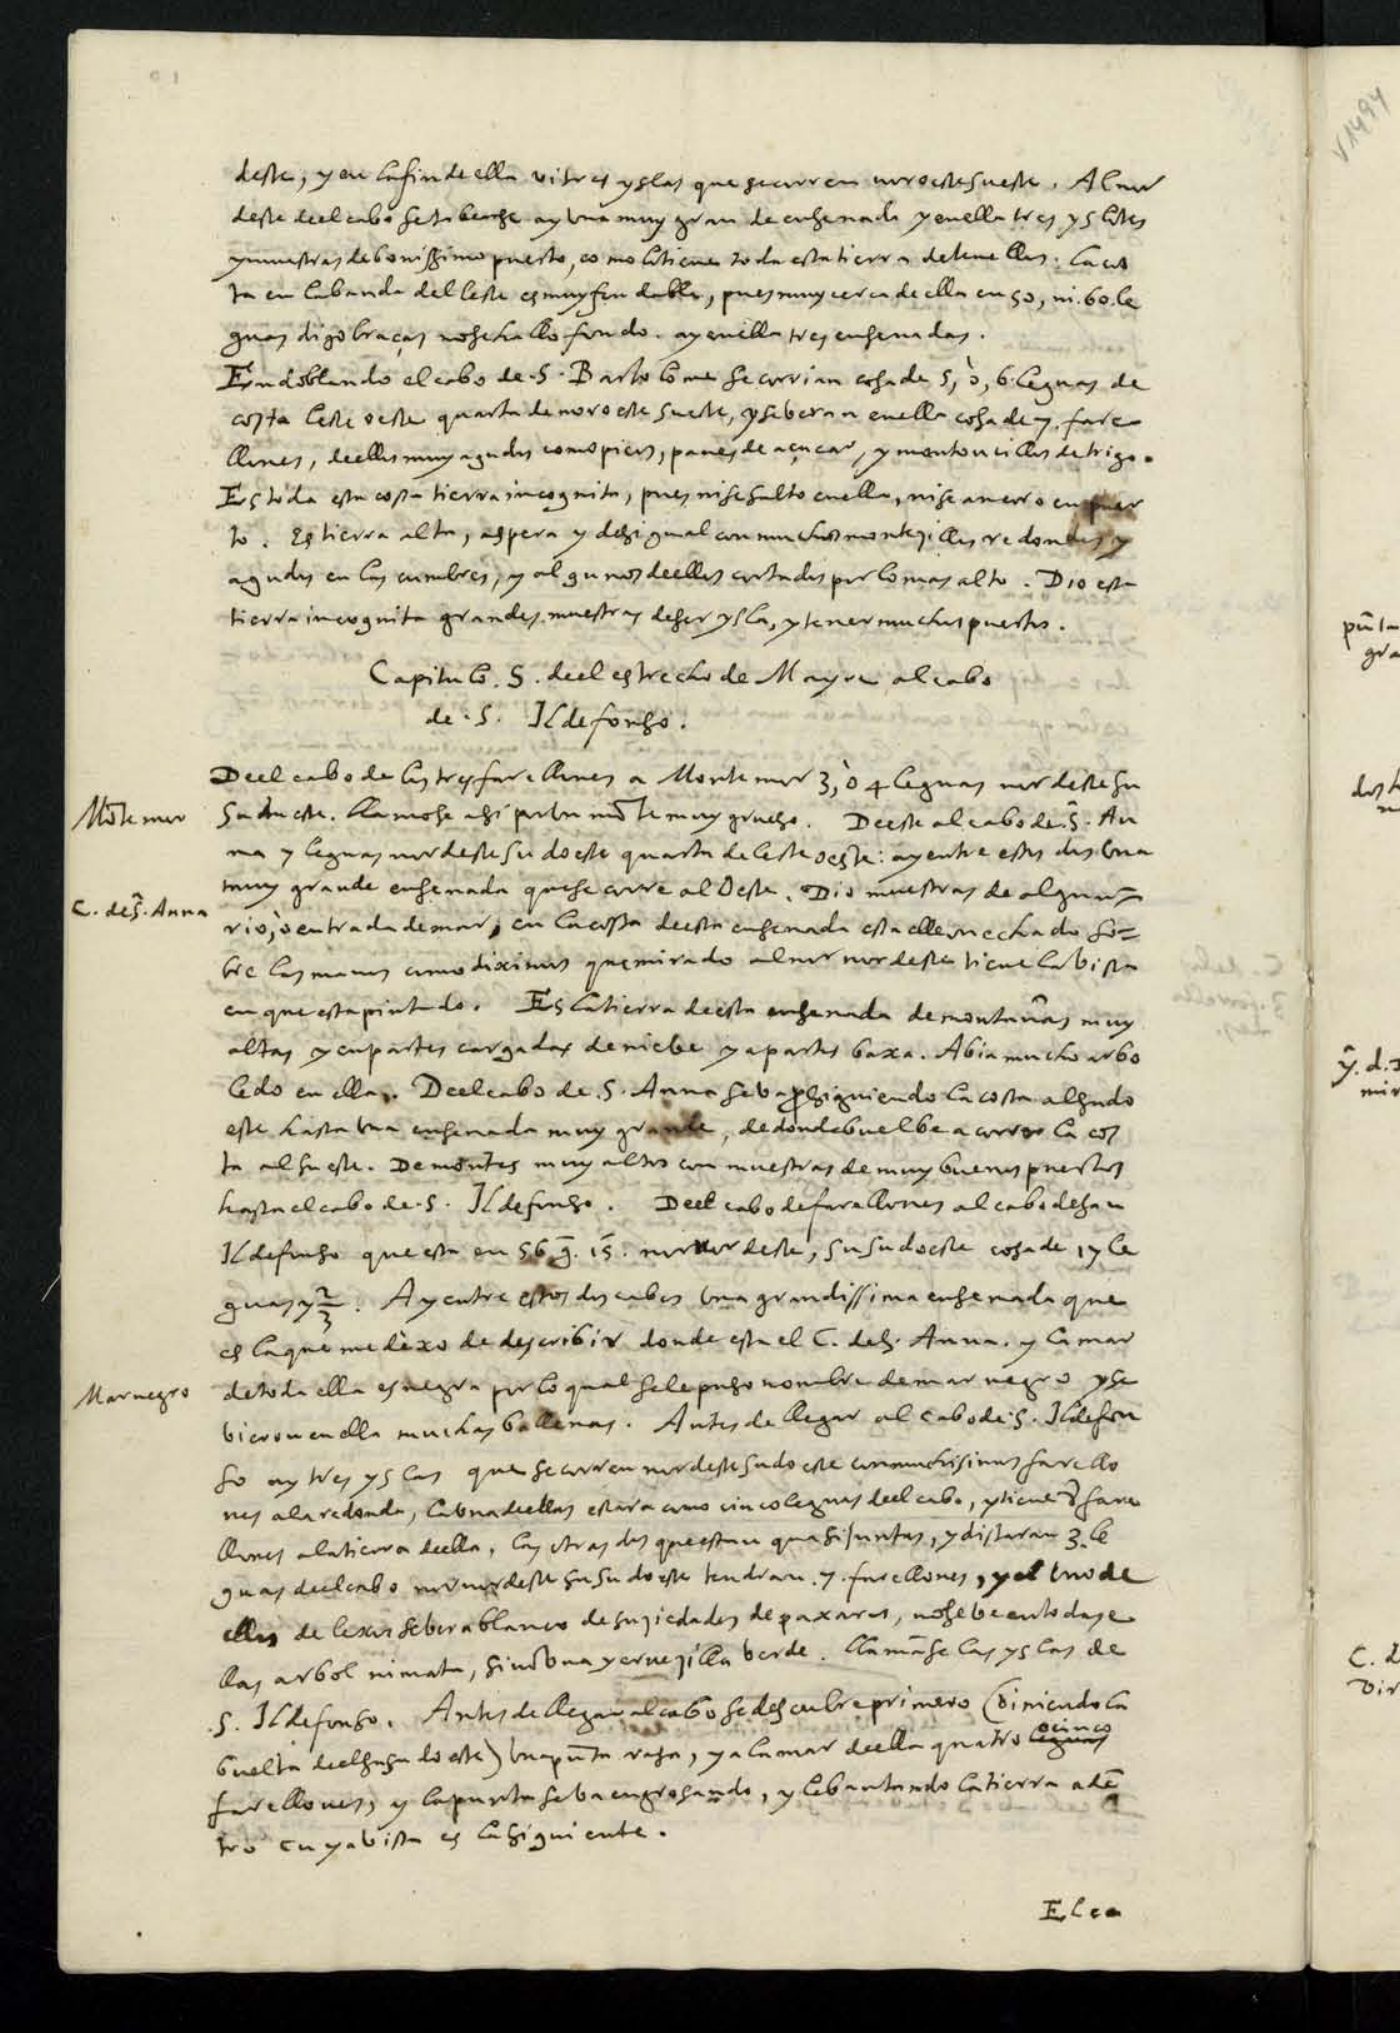 deste, y en la fin de ella vi tres yslas que se corren noroeste sueste. Al nor
deste deel cabo Setabense ay una muy gran de ensenada y en ella tres yslotes
y muestras de bonissimo puerto, como lo tiene toda esta tierra de tenellos. La cos
ta en la banda del leste es muy fondable, pues muy cerca de ella en 50, ni 60. le
guas digo braças no se hallo fondo. ay en ella tres ensenadas.
En doblando el cabo de .S. Bartolome se corrian cosa de 5, ò, 6 leguas de
costa leste oeste quarta de noroeste sueste, y se beran en ella cosa de 7. fare
llones, deellos muy agudos como picos, panes de açucar, y montoncillos de trigo.
Es toda esta costa tierra incognita, pues ni se salto en ella, ni se ancorò en puer
to. Es tierra alta, aspera y desigual con muchos montezillos redondos, y
agudos en las cumbres, y algunos deellos cortados por lo mas alto. Dio esta
tierra incognita grandes muestras de ser ysla, y tener muchos puertos.
Capitulo. 5. deel estrecho de Mayre al cabo
de .S. Ildefonso.
Deel cabo de los tres farellones a Monte mor 3, ò 4 leguas nordeste su
Mõte mor
sudueste. llamose asi por un mõte muy grueso. Deeste al cabo de .S. An
na 7 leguas nordeste sudoeste quarta de leste oeste: ay entre estos dos una
muy grande ensenada que se corre al Oeste. Dio muestras de algun
C. de S. Anna
rio, ò entrada de mar, en la costa de esta ensenada esta el leon echado so=
bre las manos como diximos que mirado al nor nordeste tiene la bista
en que esta pintado. Es la tierra de esta ensenada de montañas muy
altas y en partes cargadas de niebe y a partes baxa. Abia mucho arbo
ledo en ella. Deel cabo de .S. Anna se va prosiguiendo la costa al sudo
este hasta una ensenada muy grande, de donde buelbe a correr la cos
ta al sueste. De montes muy altos con muestras de muy buenos puertos
hasta el cabo de .S. Ildefonso. Deel cabo de farellones al cabo de san
Ildefonso que esta en 56 g. 15. nor nordeste, su sudoeste cosa de 17 le
guas y 2/3. Ay entre estos dos cabos una grandissima ensenada que
es la que me dexo de describir donde esta el C. de S. Anna. y la mar
Mar negro
de toda ella es negra por lo qual se le puso nombre de mar negro y se
bieron en ella muchas ballenas. Antes de llegar al cabo de .S. Ildefon
so ay tres yslas que se corren nordeste sudoeste con muchisimos farello
nes a la redonda, la una deellas estara como cinco leguas deel cabo, y tiene 8 fare
llones a la tierra deella, las otras dos que estan quasi juntas, y distaran 3. le
guas deel cabo nor nordeste su sudoeste tendran 7. farellones, y el uno de
ellos de lexos se bera blanco de suziedades de paxaros, no se be en todas e
llas arbol ni mata, sino una yerbezilla berde. llamãse las yslas de
.S. Ildefonso. Antes de llegar al cabo se descubre primero (biniendo la
buelta deel susudoeste) una pũta rasa, y a la mar deella quatro o cinco
farellones, y la punta se ba engrosando, y lebantando la tierra adẽ
tro cuya bista es la siguiente.
El ca